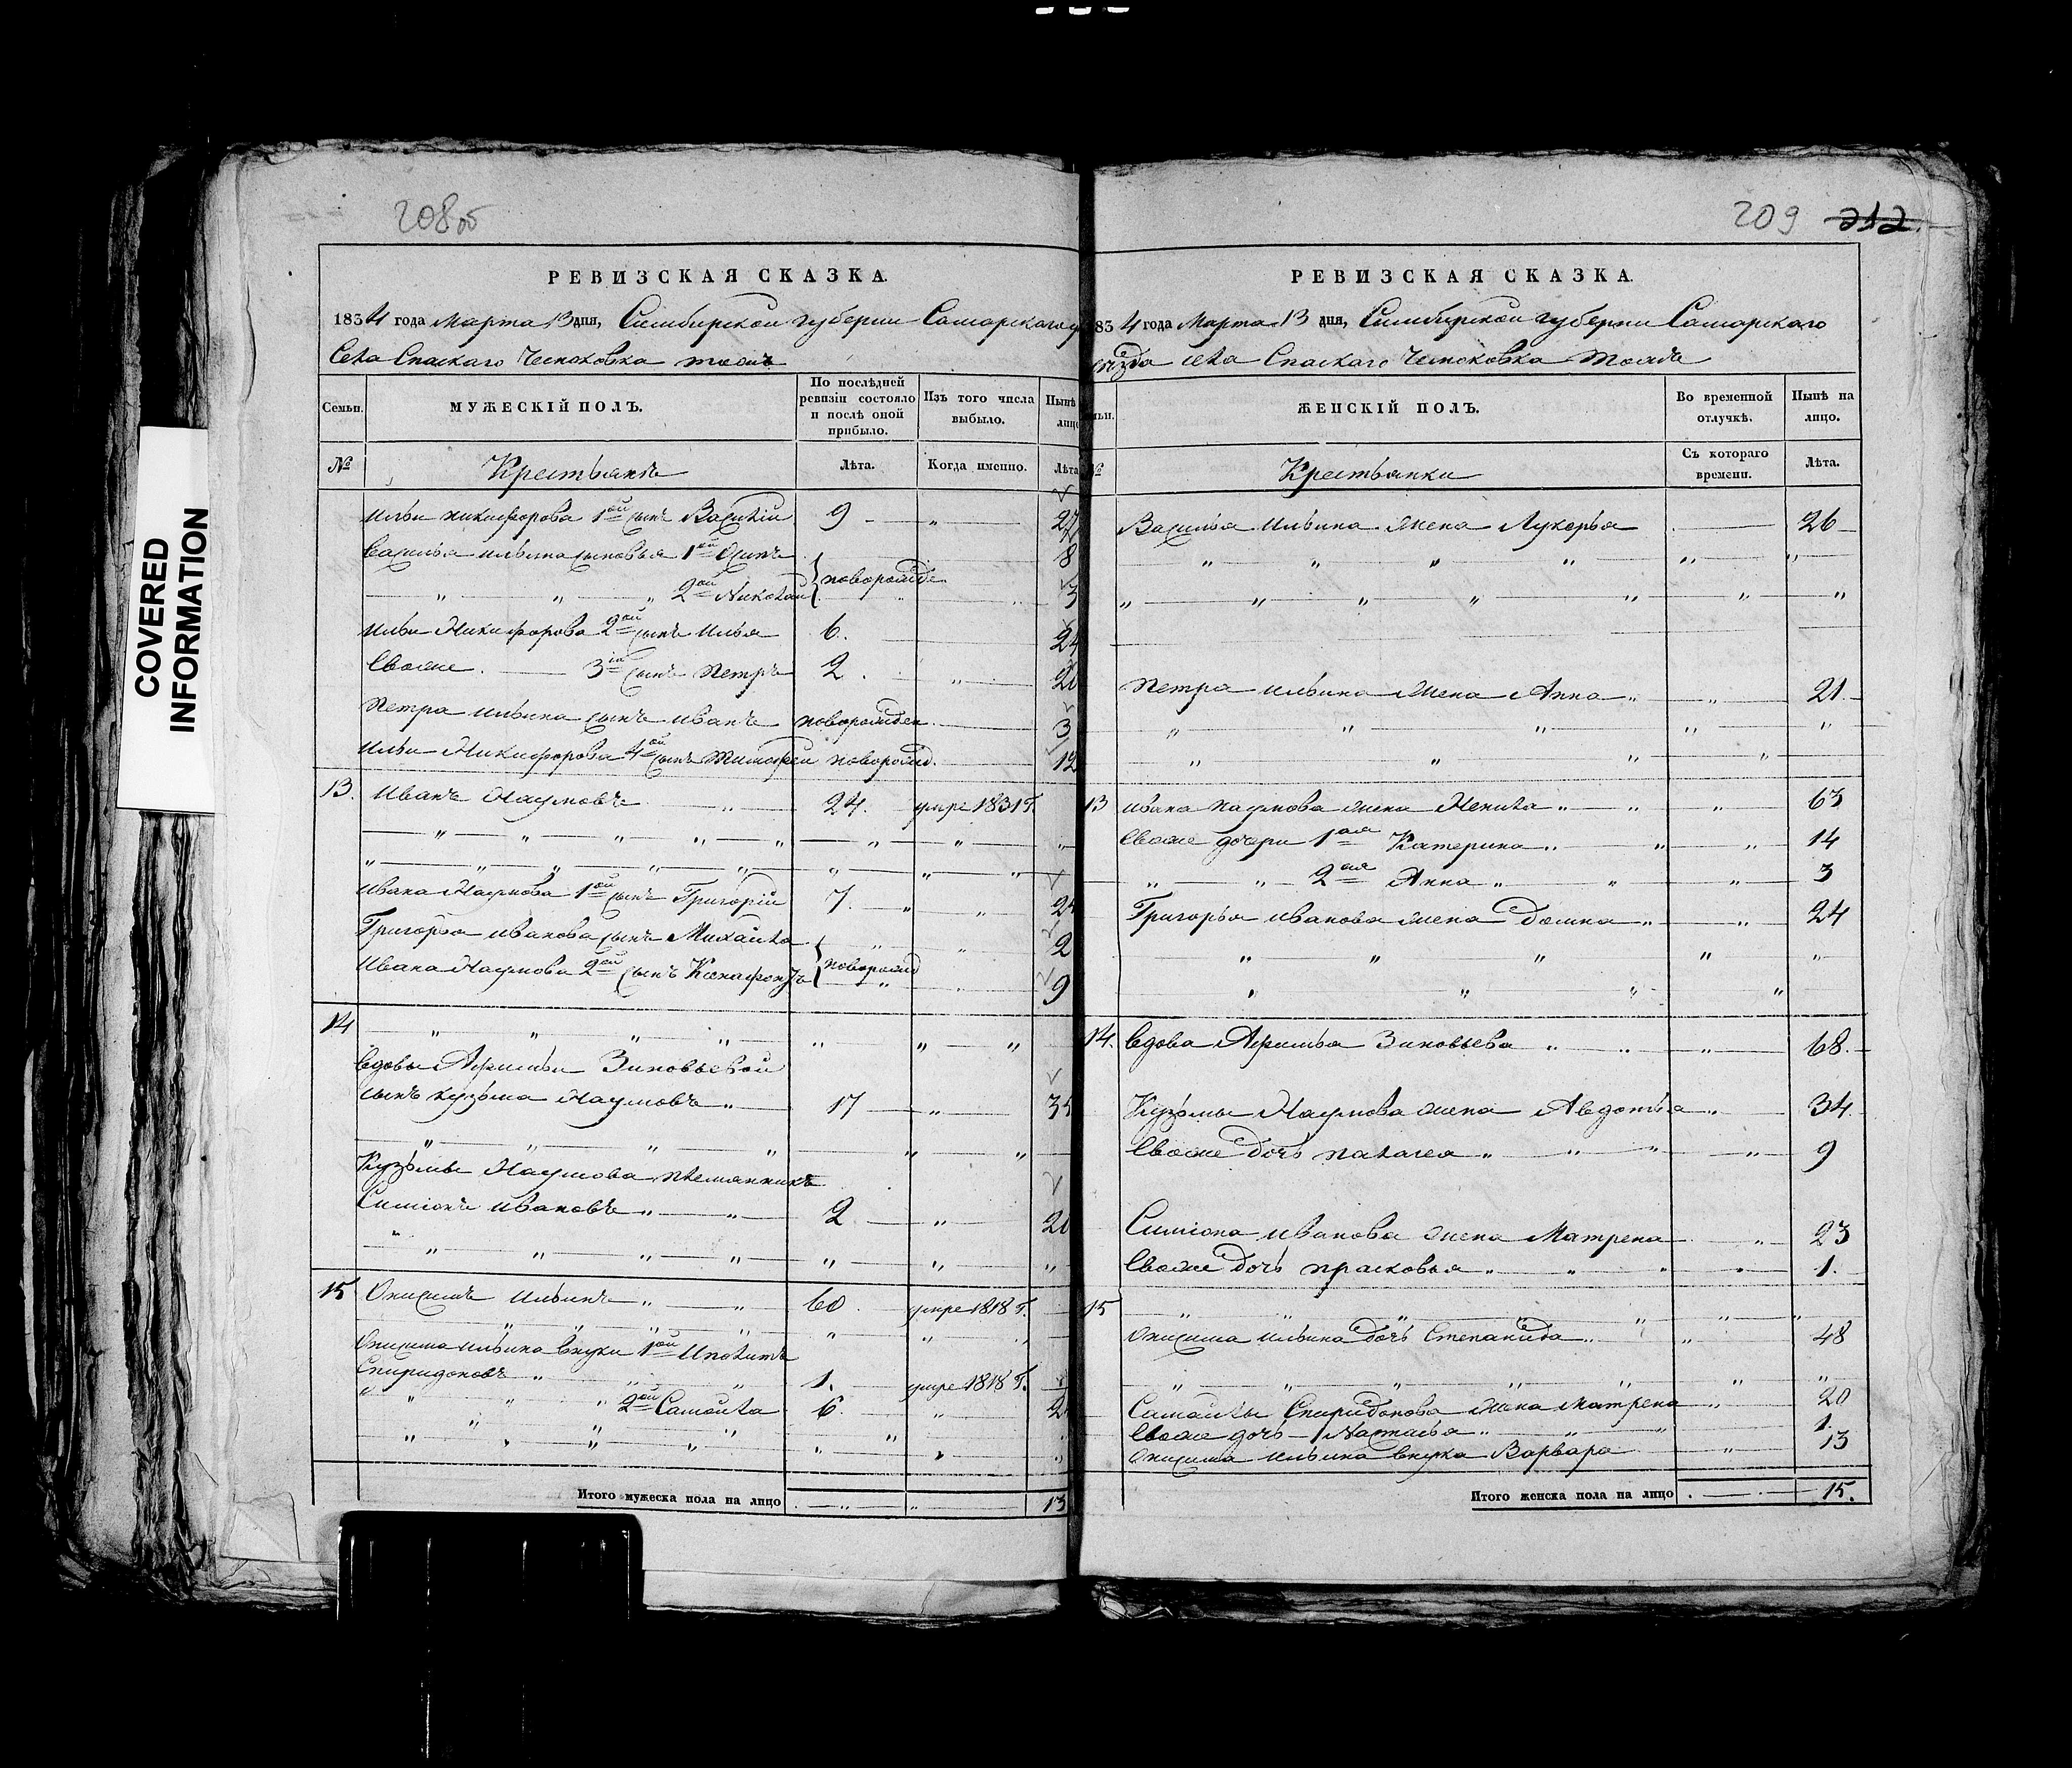 208об
РЕВИЗСКАЯ СКАЗКА.
1834 года Марта 13 дня, Симбирской губернии Самарскаго
Села Спаскаго Чесноковка тожъ
Семьи. МУЖЕСКІЙ ПОЛЪ. По послѣдней ревизіи состояло и послѣ оной прибыло. Изъ того числа выбыло. Нынѣ лицо
№ Крестьянѣ Лѣта. Когда именно. Лѣта
Ильи никифорова 1ой сынъ Василій 9 — „ — 27
Василья ильина сыновья 1ой Осипъ 8
„ „ „ 2ой Николай новорожде 3
Ильи Никифорова 2ой сынъ Илья 6. 24
Евоже 3ій сынъ Петръ 2 „
Петра ильина сынъ иванъ новорожден 3
Ильи Никифорова 4ой сынъ Тимофей новорожд. 12
13. Иванъ Наумовъ „ 24. умре 1831 г.
„ „ „ „ „ „ „ „
„ „ „ „ „ „ „ „
Ивана Наумова 1ой сынъ Григорій 7. „ „
Григорья иванова сынъ Михайла „ „ 2
Ивана Наумова 2ой сынъ новорожд „ 9
14 „ „ „ „ „ „ „
вдовы Зиновьевой
сынъ кузьма Наумовъ „ 17 „ 35
„ „ „ „ „ „
Кузьмы Наумова племянникъ
Симіонъ ивановъ „ „ 2 „
„ „ „ „ „ „ „
15 Онисимъ Ильинъ „ „ 60 умре 1818 г.
„ „ „ „ „ „ „
Онисима ильина внуки 1ой Иполитъ
Спиридоновъ „ „ „ 1. умре 1818 г.
„ „ „ 2ой Самойла 6. „
„ „ „ „ „ „ „
Итого мужеска пола на лицо „ „ 13
209 212
РЕВИЗСКАЯ СКАЗКА.
834 года Марта 13 дня, Симбирской губерни Самарскаго
уѣзда села Спаскаго Чесноковка тожъ
ьи. ЖЕНСКІЙ ПОЛЪ. Во временной отлучкѣ. Нынѣ на лицо.
№ Крестьянки Съ котораго времени. Лѣта.
Василья ильина жена Лукерья 26
„ „ „ „ „ „
„ „ „ „ „ „ „
Петра ильина жена Анна „ „ 21.
„ „ „ „ „
„ „ „ „
13 ивана наумова жена Ненила „ „ „ 63
Евоже дочери 1ая Катерина „ „ „ 14
„ „ 2ая Анна „ „ „ 3
Григорья иванова жена Домна „ „ 24
„ „ „ „ „
„ „ „ „
14. вдова Зиновьева „ „ „ 68.
Кузьмы Наумова жена Авдотья „ 34.
Евоже дочь палагея „ „ „ „ 9
Симіона иванова жена Матрена „ 23
Евоже дочь прасковья „ „ „ „ 1.
15 „ „ „ „ „ „ „
Онисима ильина дочь Степанида „ „ 48
„ „ „ „ „ „ „
Самойлы Спиридонова жена матрена „ 20
Евоже дочь — Наталья „ „ „ 1.
Онисима ильина внука Варвара „ 13
Итого женска пола на лицо 15.
COVERED
INFORMATION